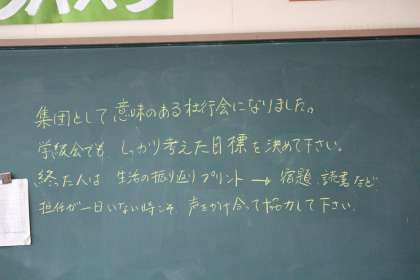 集団として意味のある壮行会になりました。
学級会でも、しっかり考えた目標を決めて下さい。
終った人は 生活の振り返りプリント → 宿題、読書など
担任が一日いない時こそ 声をかけ合って協力して下さい